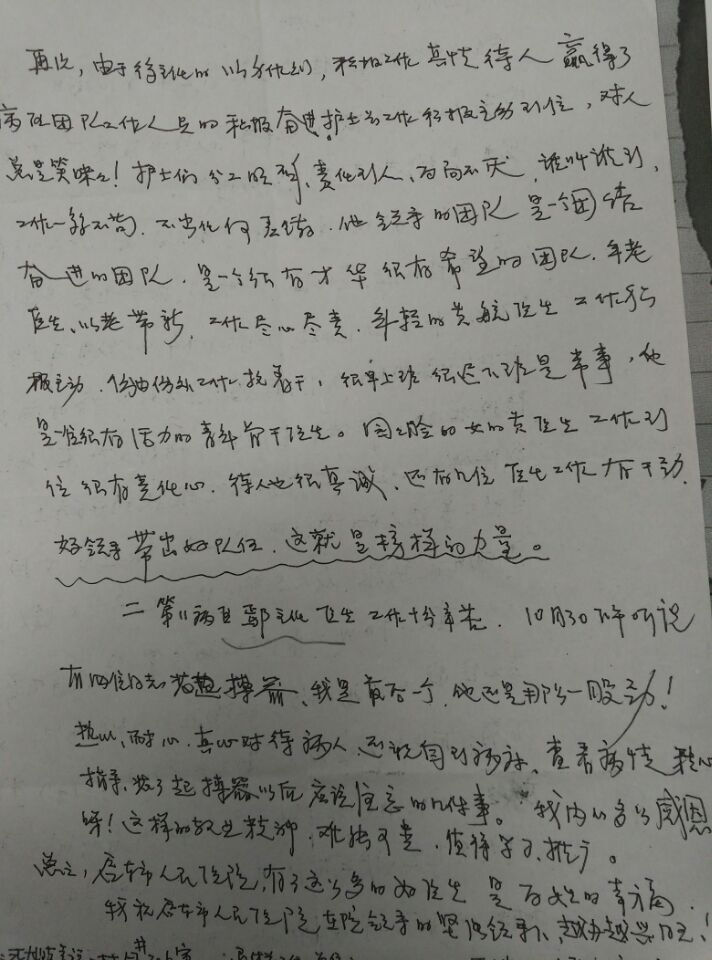 再次，由于徐主任的以身作则，积极工作真情待人赢得了
病区团队工作人员的积极奋进，护士为工作积极主动到位，对人
总是笑咪咪！护士们分工明确、责任到人、百问不厌，谁叫谁到，
工作一丝不苟，不出任何差错。他领导的团队是一个团结
奋进的团队，是一个很有才华很有希望的团队。年老
医生，以老带新，工作尽心尽责，年轻的黄航医生工作积
极主动，工作抢着干，很早上班很迟下班是常事，他
是一位很有活力的青年骨干医生。圆圆脸的女的黄医生工作到
位很有责任心，待人也很真诚，还有几位医生工作有干劲，
好领导带出好队伍，这就是榜样的力量。
二 第11病区鄢主任医生工作十分辛苦，10月30下午听说
有四位同志装起搏器，我是最后一个，他还是用作一股劲！
热心、耐心、真心对待病人，还亲自到病房、查看病情，精心
指导，装了起搏器以后应该注意的几件事。我内心多么感恩
呀！这样的敬业精神，难能可贵，值得学习、推广。
总之，市人民医院，有了这么多的好医生是百姓的幸福，
我祝市人民医院在院领导的坚强领导下，越办越兴旺！